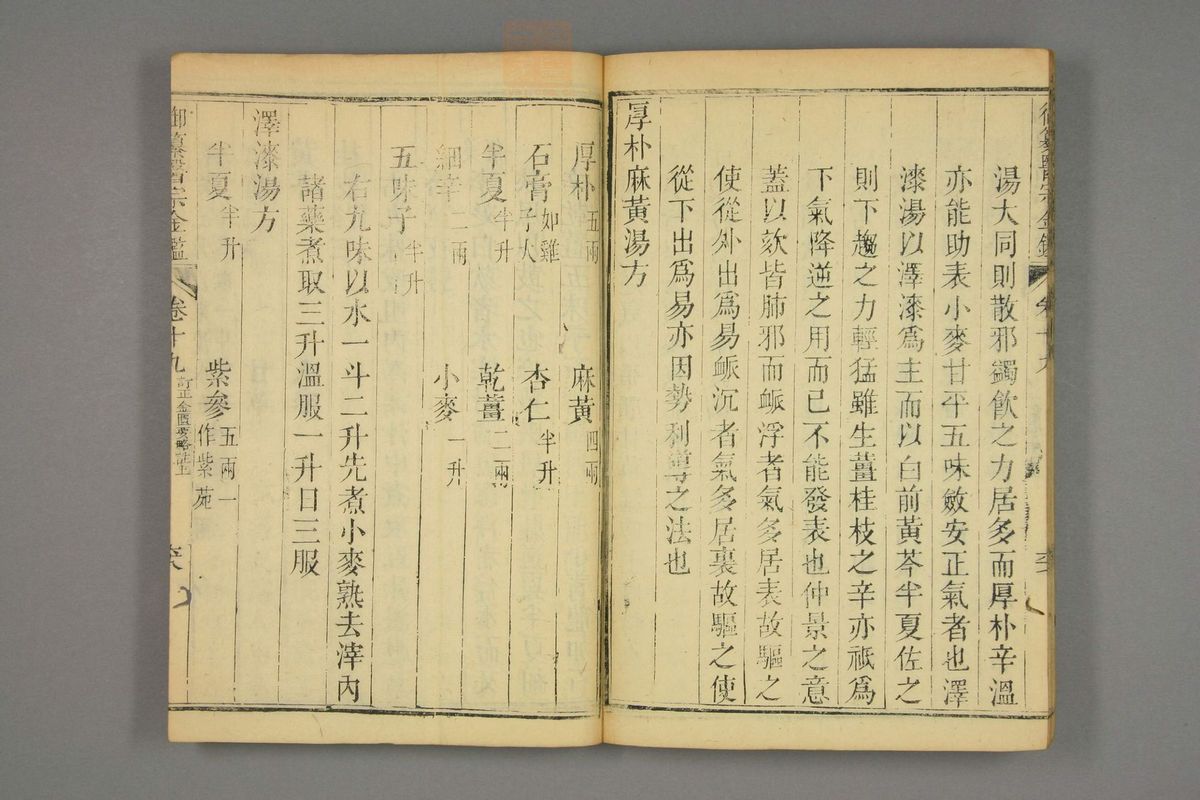 湯大同則散邪蠲飲之力居多而厚朴辛溫
亦能助表小麥甘平五味斂安正氣者也澤
漆湯以澤漆爲主而以白前黃芩半夏佐之
則下趨之力輕猛雖生薑桂枝之辛亦祇爲
下氣降逆之用而已不能發表也仲景之意
蓋以欬皆肺邪而䘑浮者氣多居表故驅之
使從外出爲易䘑沉者氣多居裏故驅之使
從下出爲易亦因勢利導之法也
厚朴麻黃湯方
厚朴五兩 麻黃四兩
石膏如雞子大 杏仁半升
半夏半升 乾薑二兩
細辛二兩 小麥一升
五味子半升
右九味以水一斗二升先煮小麥熟去滓內
諸藥煮取三升溫服一升日三服
澤漆湯方
半夏半升 紫參五兩一作紫苑
御纂醫宗金鑑 卷十九 訂正金匱要略註